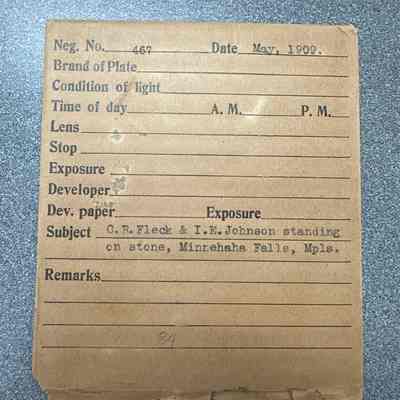 Neg. No. 467 Date May, 1909.
Brand of Plate
Condition of light
Time of day A. M. P. M.
Lens
Stop
Exposure
Developer
Dev. paper Exposure
Subject C.R.Fleck & I.E.Johnson standing
on stone, Minnehaha Falls, Mpls.
Remarks
84